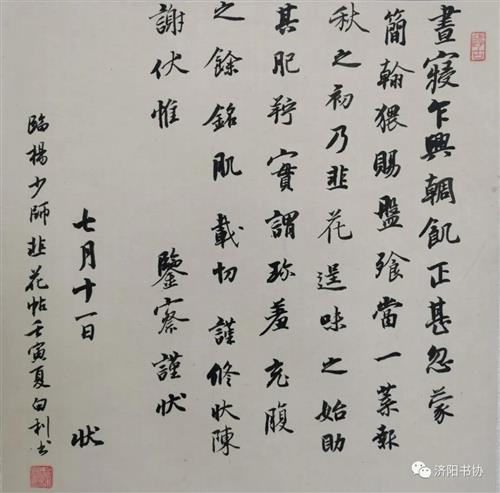 晝寢乍興輖飢正甚忽蒙
簡翰猥賜盤飧當一葉報
秋之初乃韭花逞味之始助
其肥羜實謂珍羞充腹
之餘銘肌載切謹修狀陳
謝伏惟
鑒察謹狀
七月十一日 狀
臨楊少師韭花帖壬寅夏白利书
济阳书协